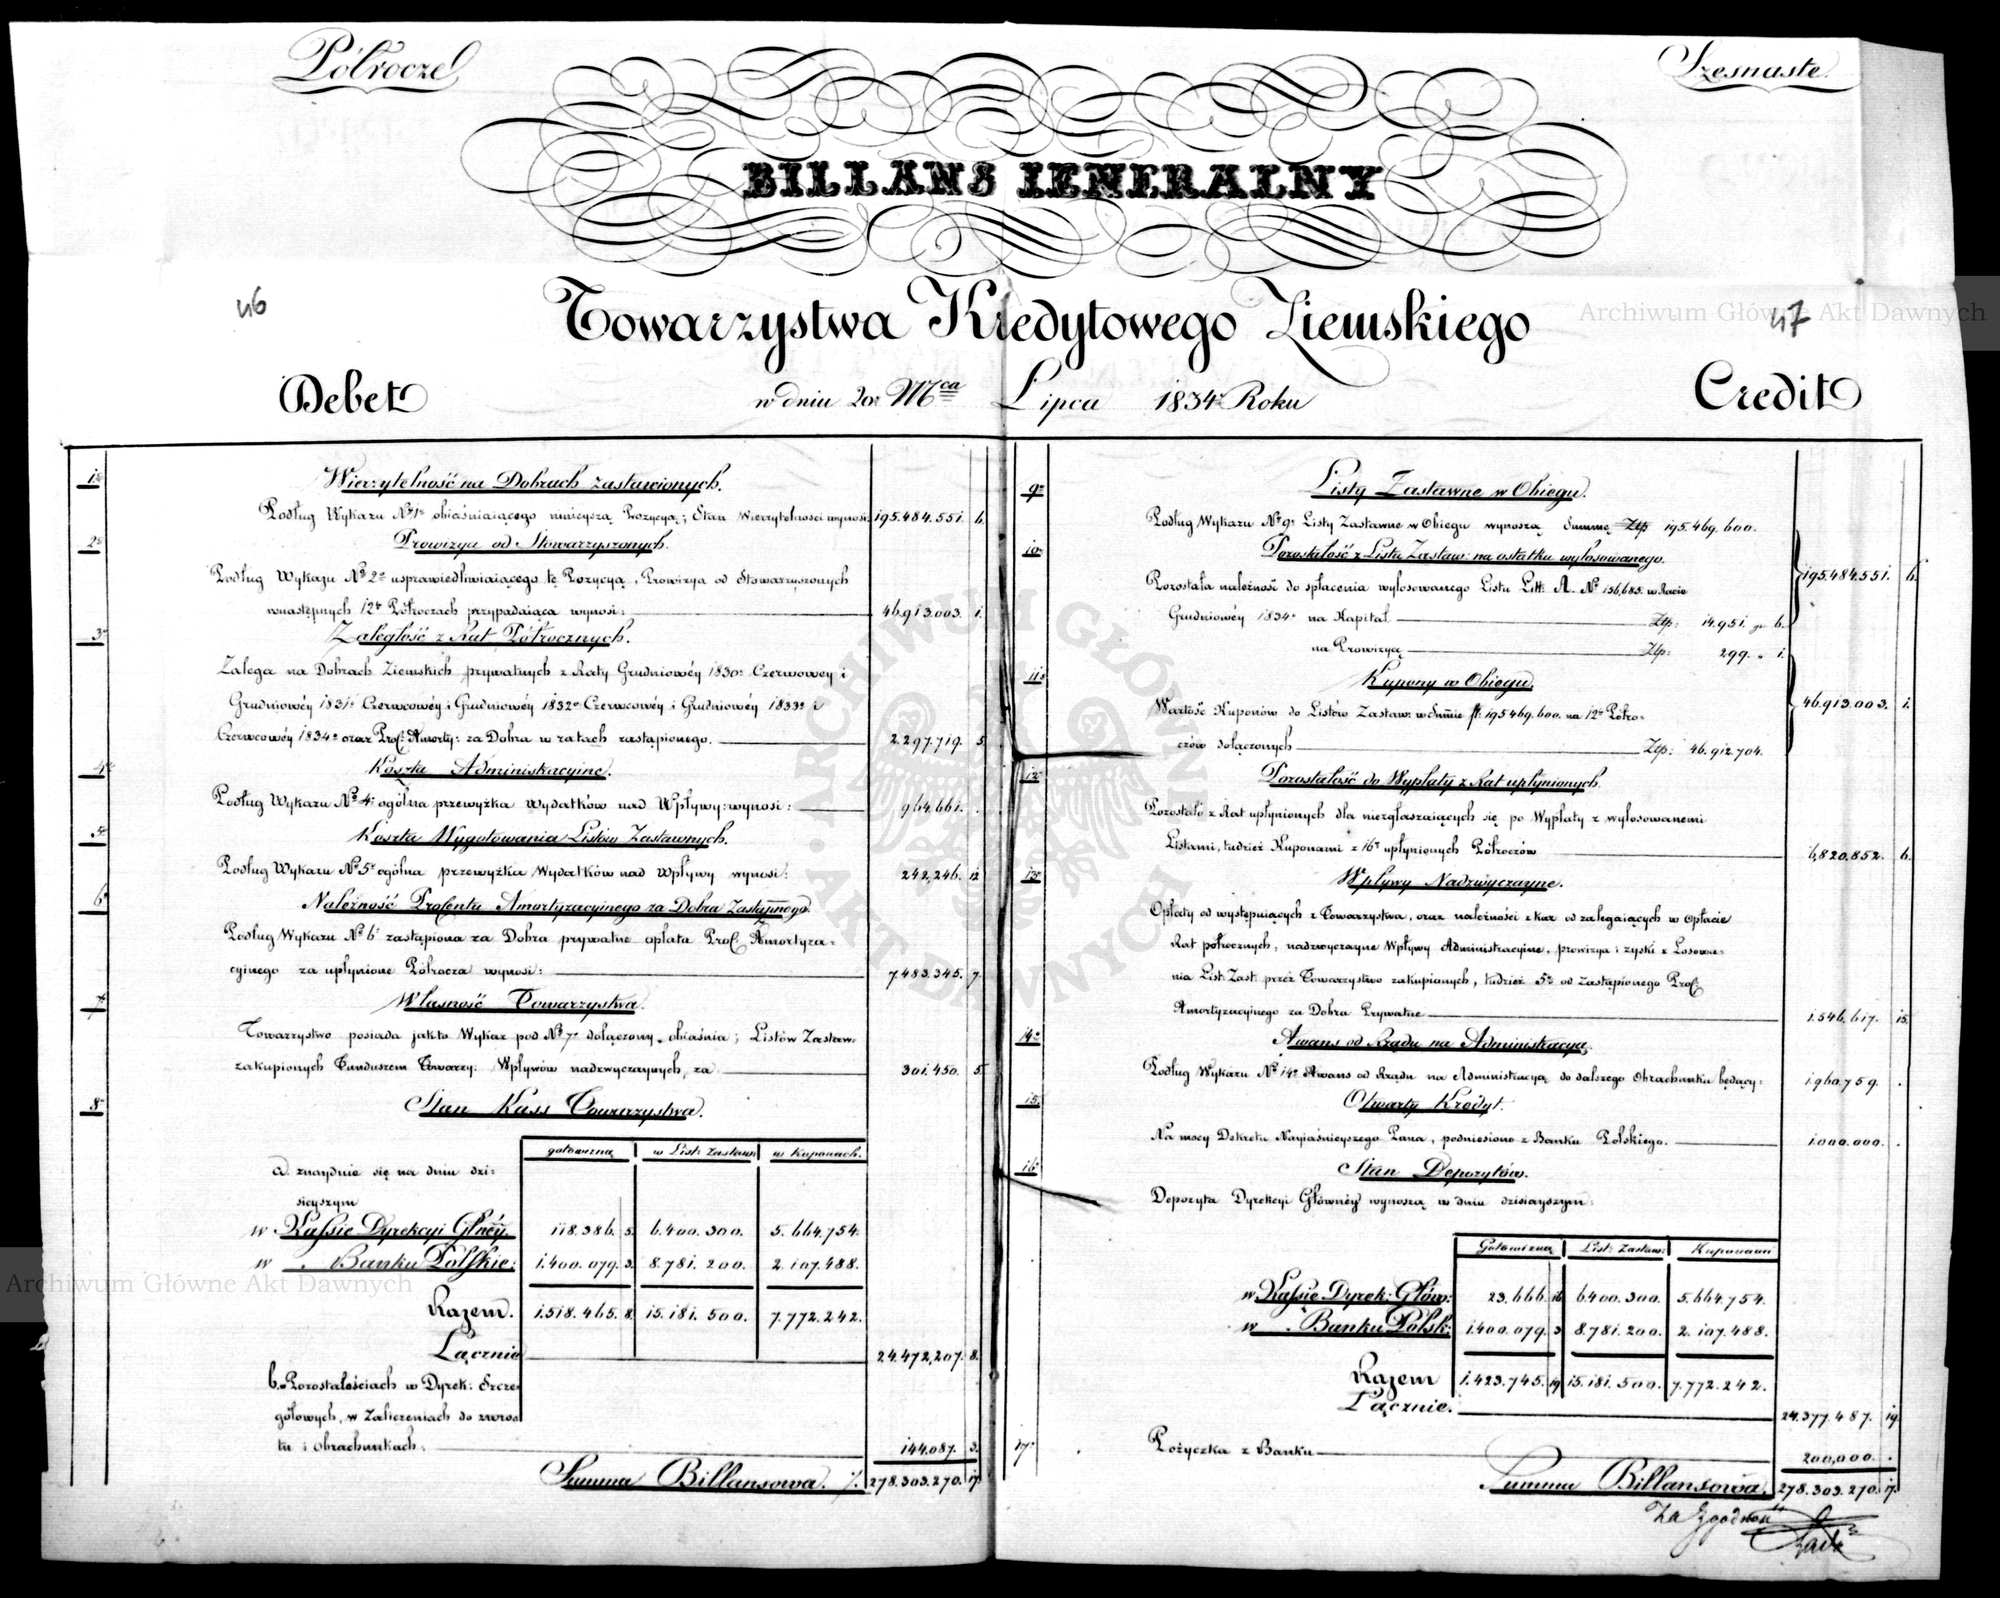 Półrocze
Szesnaste.
BILLANS IENERALNY
46
47
Towarzystwa Kredytowego Ziemskiego
Debet
w dniu 20. Mca Lipca 1834. Roku
Credit
1o
Wierzytelność na Dobrach zastawionych.
Podług Wykazu No 1o obiaśniaiącego ninieyszą Pozycyą; Stan Wierzytelności wynosi 195.484.551. 6.
2o
Prowizya od Stowarzyszonych.
Podług Wykazu No 2o usprawiedliwiaiącego tę Pozycyą, Prowizya od Stowarzyszonych
w następnych 12tu Półroczach przypadaiąca wynosi: 46.913.003. 1.
3o
Zaległość z Rat Półrocznych.
Zalega na Dobrach Ziemskich prywatnych z Raty Grudniowéy 1830o Czerwcowey i
Grudniowéy 1831o Czerwcowéy i Grudniowéy 1832o Czerwcowéy i Grudniowéy 1833o i
Czerwcowéy 1834o oraz Prof. Amorty: za Dobra w ratach zastąpionego. 2.297.719. 5.
4o
Koszta Administracyine.
Podług Wykazu No 4o ogólna przewyżka Wydatków nad Wpływy wynosi: 964.661. .
5o
Koszta Wygotowania Listów Zastawnych.
Podług Wykazu No 5o ogólna przewyżka Wydatków nad Wpływy wynosi: 242,246. 12.
6o
Należność Procentu Amortyzacyinego za Dobra Zastąpionego.
Podług Wykazu No 6o zastąpiona za Dobra prywatne opłata Prof. Amortyza-
cyinego za upłynione Półrocza wynosi: 7.483.345. 7.
7o
Własność Towarzystwa.
Towarzystwo posiada jak to Wykaz pod No 7o dołączony obiaśnia; Listów Zastaw:
zakupionych Funduszem Towarzy: Wpływów nadzwyczaynych, za 301.450. 5.
8o
Stan Kass Towarzystwa.
gotowizną w List: Zastaw: w Kuponach.
a. znayduie się na dniu dzi-
sieyszym
w Kassie Dyrekcyi Głnéy. 118.386. 5. 6.400.300. 5.664.754.
w Banku Polskie: 1.400.079. 3. 8.781.200. 2.107.488.
Razem. 1.518.465. 8. 15.181.500. 7.772.242.
Łącznie 24.472,207. 8.
b. Pozostałościach w Dyrek: Szcze-
gółowych, w Zaliczeniach do zwro-
tu i obrachunkach: 144.087. 3.
Summa Billansowa. 278.303.270. 17.
9o
Listy Zastawne w Obiegu.
Podług Wykazu No 9o Listy Zastawne w Obiegu wynoszą Summę Złp 195.469.600.
10o
Pozostałość z Listu Zastaw: na ostatku wylosowanego.
195.484.551. 6.
Pozostała należność do spłacenia wylosowanego Listu Litt: A. No 136,685. w Racie
Grudniowéy 1834o na Kapitał Złp: 14.951. gr 6.
na Prowizyą Złp: 299. " 1.
11o
Kupony w Obiegu.
46.913.003. 1.
Wartość Kuponów do Listów Zastaw: w Summie fl. 195.469.600. na 12tu Półro-
czów dołączonych Złp: 46.912.704.
12o
Pozostałość do Wypłaty z Rat upłynionych.
Pozostało z Rat upłynionych dla niezgłaszaiących się po Wypłaty z wylosowanemi
Listami, tudzież Kuponami z 16tu upłynionych Półroczów 6,820.852. 6.
13o
Wpływy Nadzwyczayne.
Opłaty od występuiących z Towarzystwa, oraz należności z kar od zalegaiących w opłacie
Rat półrocznych, nadzwyczayne Wpływy Administracyine, prowizya i zyski z Losowa-
nia List: Zast: przez Towarzystwo zakupionych, tudzież 5te od Zastąpionego Prof.
Amortyzacyinego za Dobra Prywatne 1.546,617. 15.
14o
Awans od Rządu na Administracyą.
Podług Wykazu No 14o Awans od Rządu na Administracyą do dalszego Obrachunku będący: 1.960.759. .
15.
Otwarty Kredyt.
Na mocy Dekretu Nayiaśnieyszego Pana, podniesiono z Banku Polskiego. 1.000.000. .
16o
Stan Depozytów.
Depozyta Dyrekcyi Głównéy wynoszą w dniu dzisieyszym:
Gotowizną List: Zastaw: Kuponami
w Kassie Dyrek: Głów: 23.666. 16 6.400.300. 5.664.754.
w Banku Polsk: 1.400.079. 3 8.781.200. 2.107.488.
Razem 1.423.745. 19 15.181.500. 7.772.242.
Łącznie. 24.377.487. 19.
17o
Pożyczka z Banku 200,000. .
Summa Billansowa. 278.303.270. 17.
Za Zgodność
Archiwum Główne Akt Dawnych
Archiwum Główne Akt Dawnych
ARCHIWUM GŁÓWNE AKT DAWNYCH